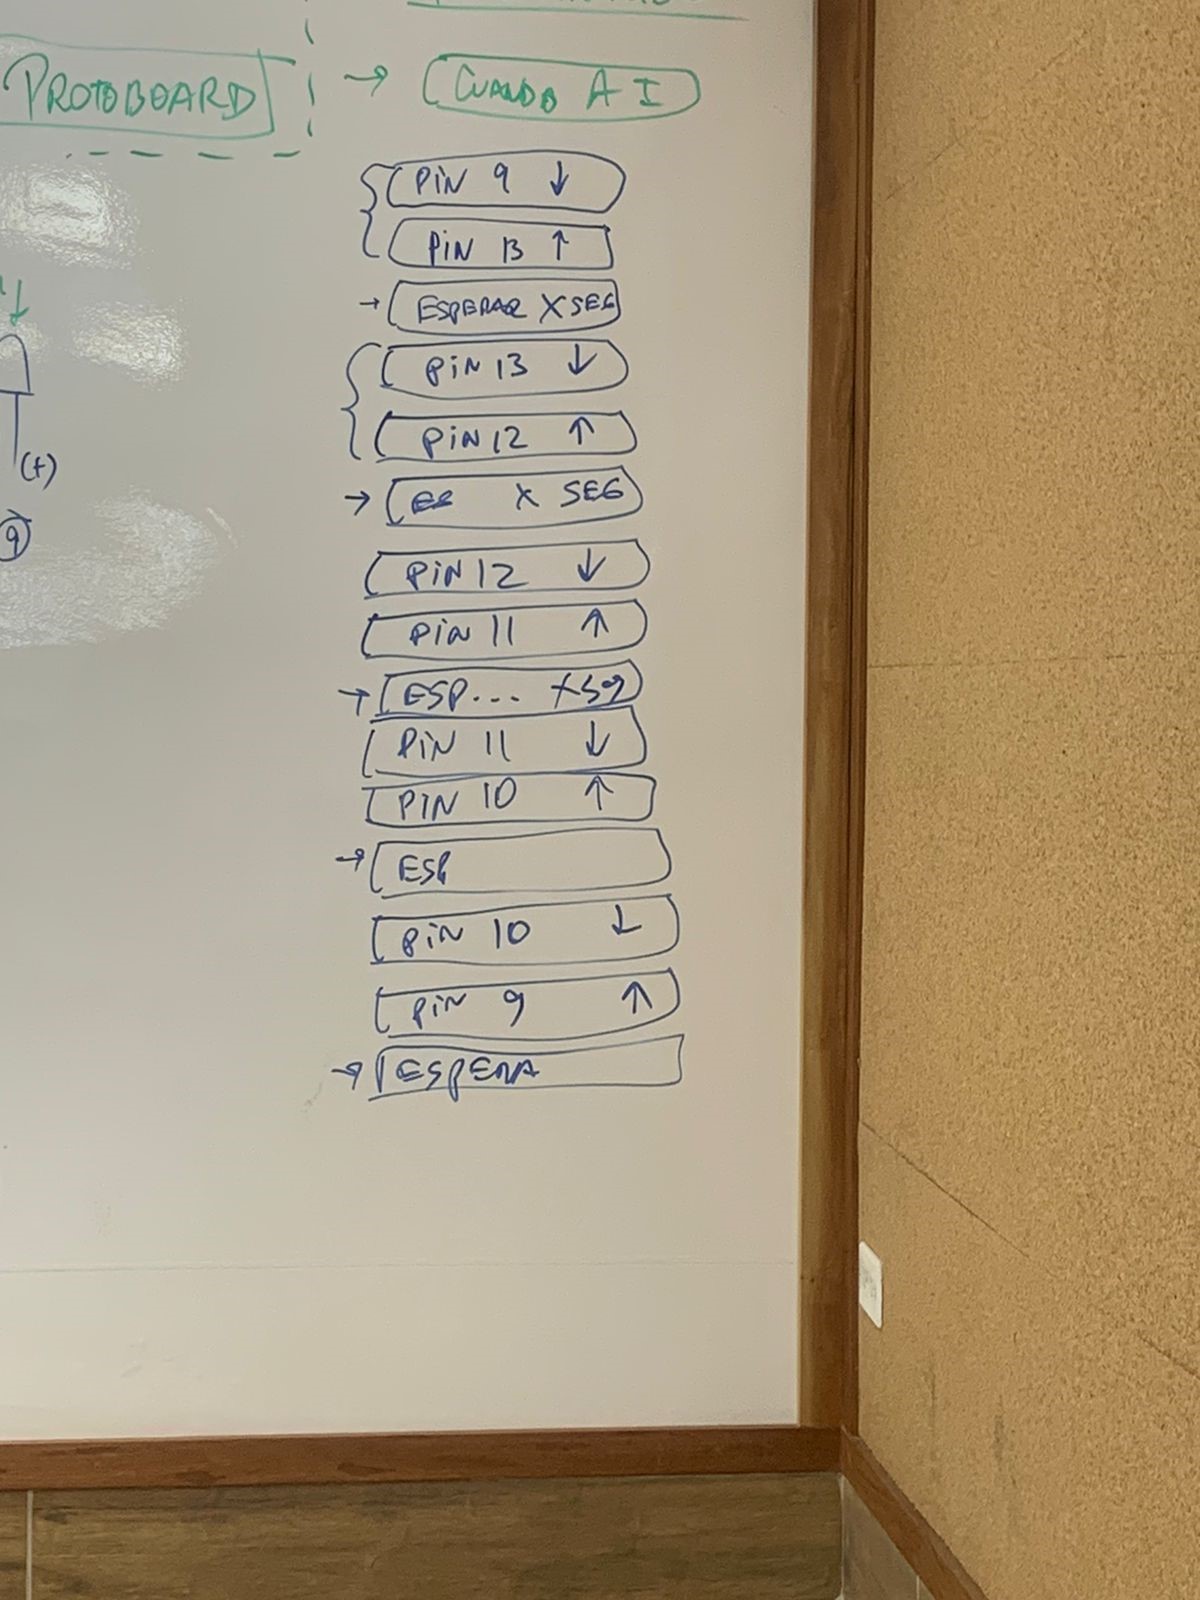 PROTOBOARD → CUANDO A I
PIN 9 ↓
PIN 13 ↑
→ ESPERAR X SEG
PIN 13 ↓
PIN 12 ↑
→ ES X SEG
PIN 12 ↓
PIN 11 ↑
→ ESP... X Sg
PIN 11 ↓
PIN 10 ↑
→ ESP
PIN 10 ↓
PIN 9 ↑
→ ESPERA
(+)
9